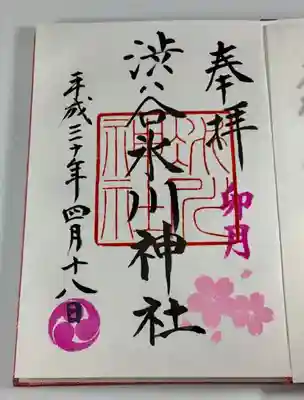 奉拝
卯月
渋谷氷川神社
平成三十年四月十八日